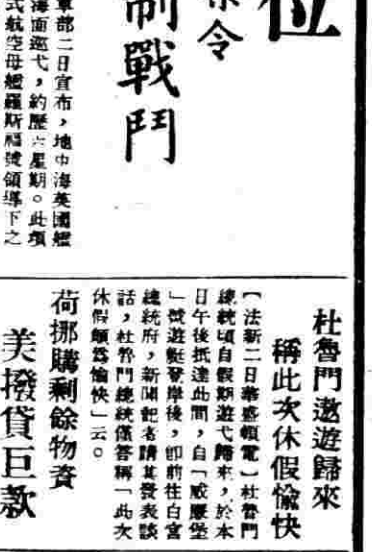 位
令
制戰鬥
軍部二日宣布，地中海英國艦
海面巡弋，約歷六星期。此項
式航空母艦羅斯福號領導下之
杜魯門遨遊歸來
稱此次休假愉快
【法新二日華盛頓電】杜魯門
總統頃自假期遊弋歸來，於本
日午後抵達此間，自「威廉堡
」號遊艇登岸後，即前往白宮
總統府，新聞記者請其發表談
話，杜魯門總統僅答稱「此次
休假頗為愉快」云。
荷挪購剩餘物資
美撥貸巨款